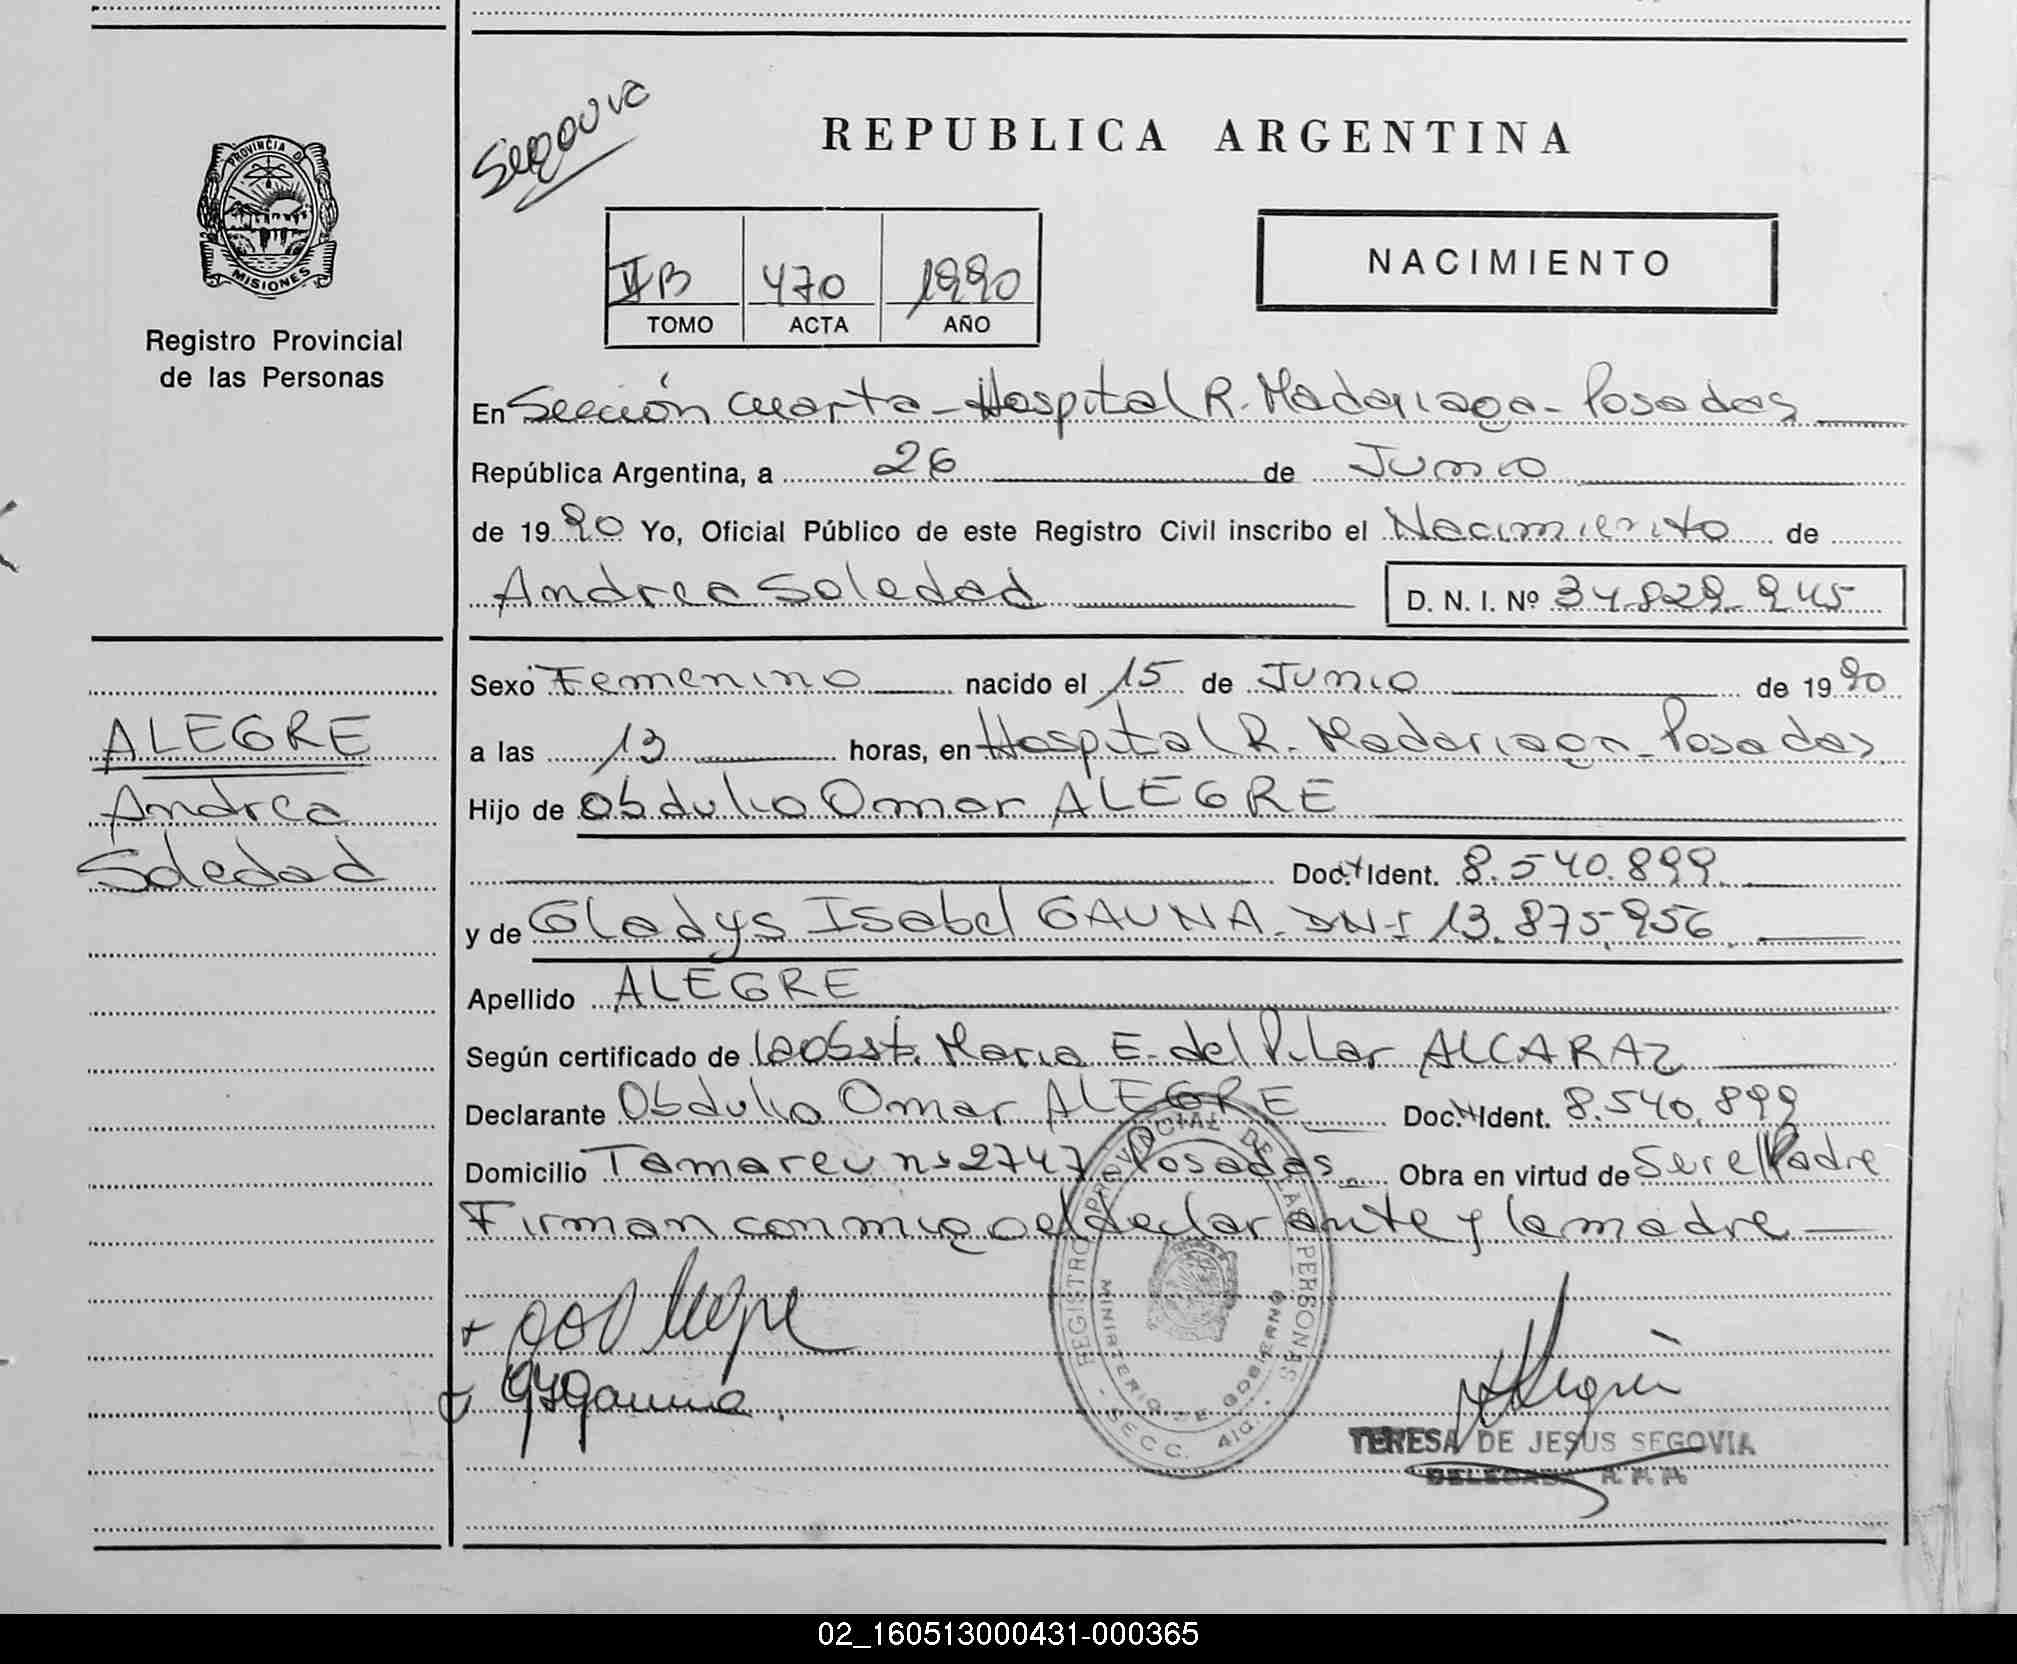 PROVINCIA DE
MISIONES
Registro Provincial
de las Personas
Segovia
REPUBLICA ARGENTINA
II B 470 1990
TOMO ACTA AÑO
NACIMIENTO
En Sección Cuarta - Hospital R. Madariaga - Posadas
República Argentina, a 26 de Junio
de 1990 Yo, Oficial Público de este Registro Civil inscribo el Nacimiento de
Andrea Soledad D. N. I. Nº 34.829.945
Sexo Femenino nacido el 15 de Junio de 1990
a las 13 horas, en Hospital R. Madariaga - Posadas
Hijo de Obdulio Omar ALEGRE
Doc. Ident. 8.540.899
y de Gladys Isabel GAUNA - DNI 13.875.956
Apellido ALEGRE
Según certificado de la Obst. Maria E. del Pilar ALCARAZ
Declarante Obdulio Omar ALEGRE Doc. Ident. 8.540.899
Domicilio Tamareu nº 2747 Posadas Obra en virtud de Ser el Padre
Firman conmigo el declarante y la madre
ALEGRE
Andrea
Soledad
REGISTRO PROVINCIAL DE LAS PERSONAS
MINISTERIO DE GOBIERNO
SECC. 4ta.
Gauna
TERESA DE JESUS SEGOVIA
DELEGADA
02_160513000431-000365